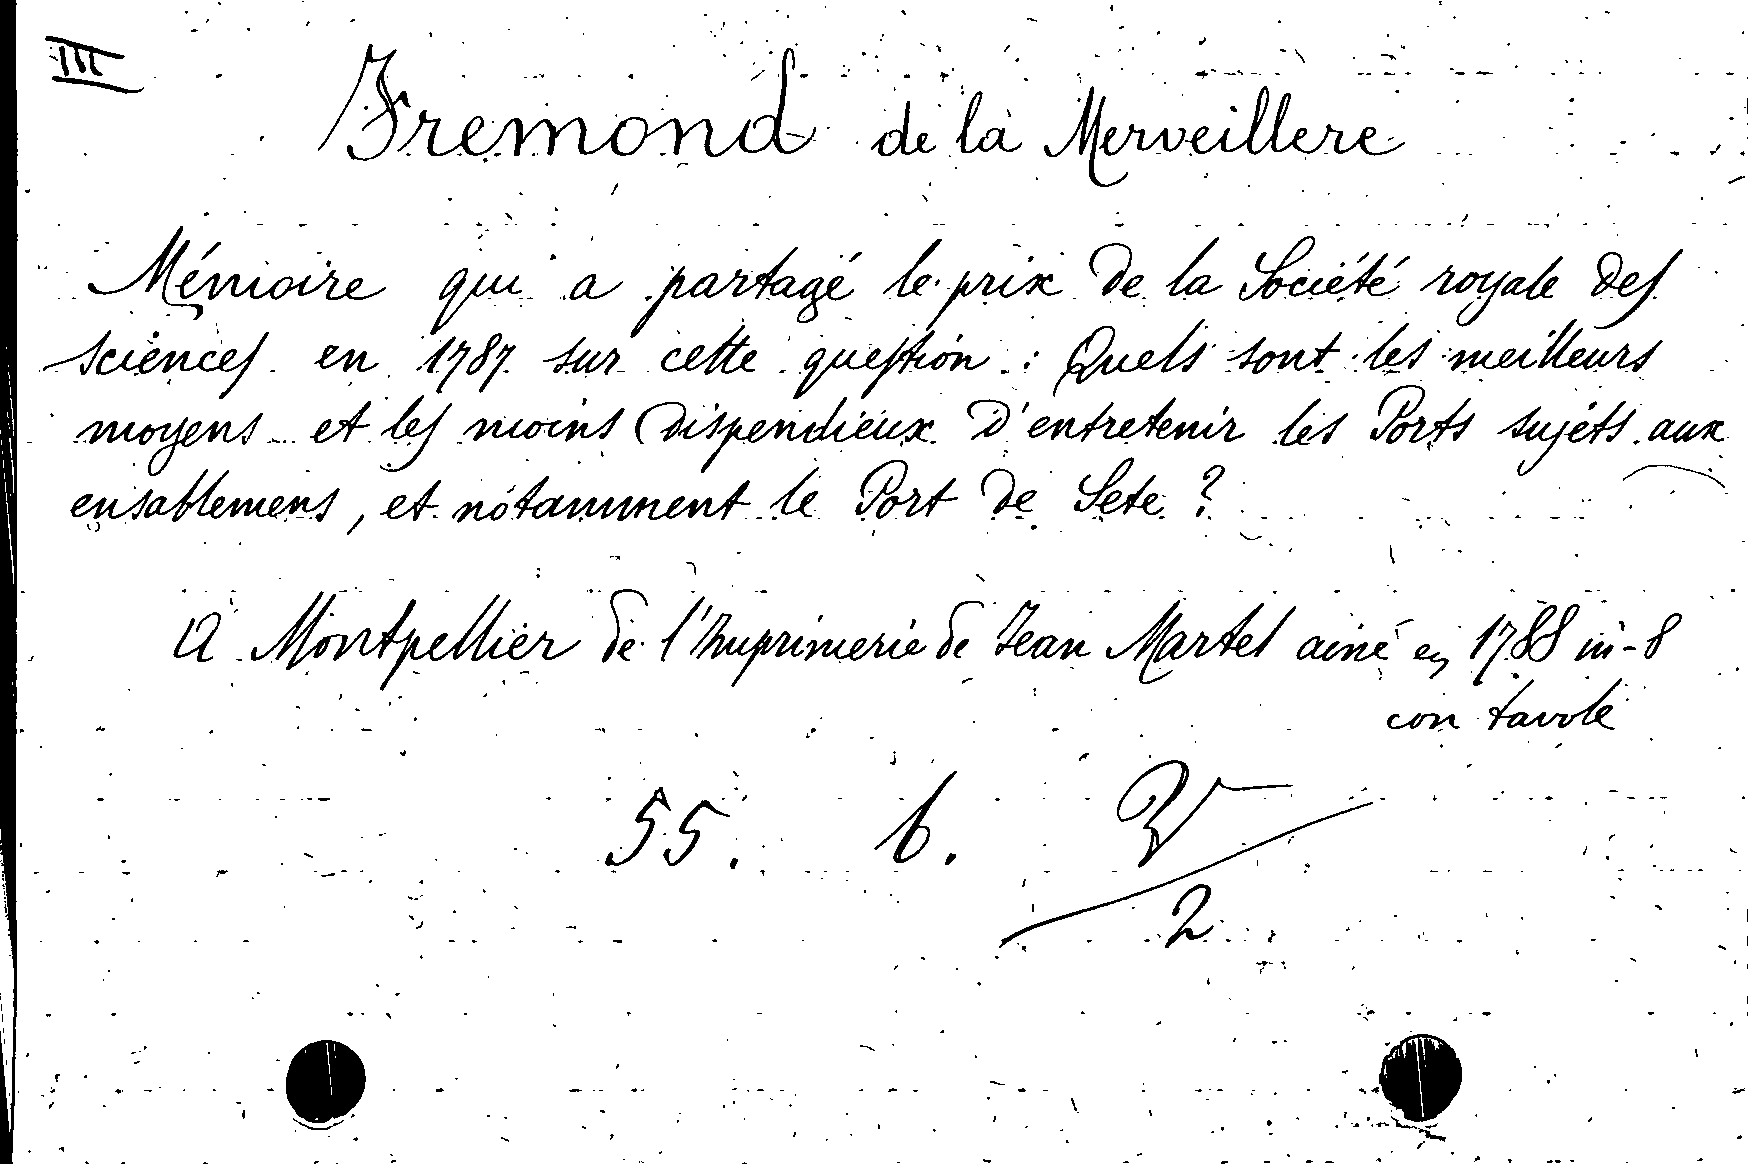 III
Fremond de la Merveillere
Mémoire qui a partagé le prix de la Société royale des
sciences en 1787 sur cette question : Quels sont les meilleurs
moyens et les moins dispendieux d'entretenir les Ports sujets aux
ensablemens, et notamment le Port de Sete ?
A Montpellier de l'Imprimerie de Jean Martel ainé en 1788 in-8
con tavole
55. b.
2